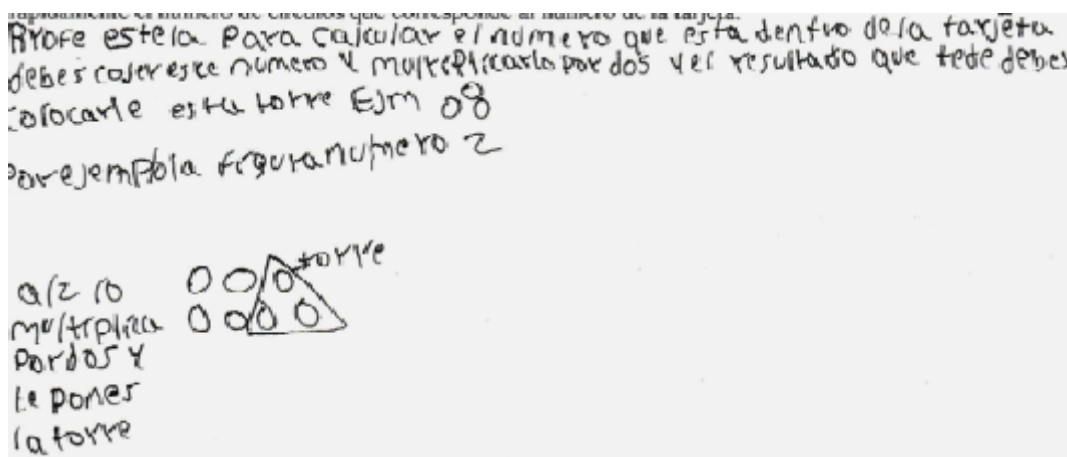 rápidamente el número de círculos que corresponde al número de la tarjeta.
Profe estela para calcular el numero que esta dentro dela tarjeta
debes cojer este numero y multeplicarlo por dos y el resultado que tede debes
colocarle esta torre Ejm
por ejempola figura numero 2
torre
al 2 lo
multiplica
por dos y
le pones
la torre